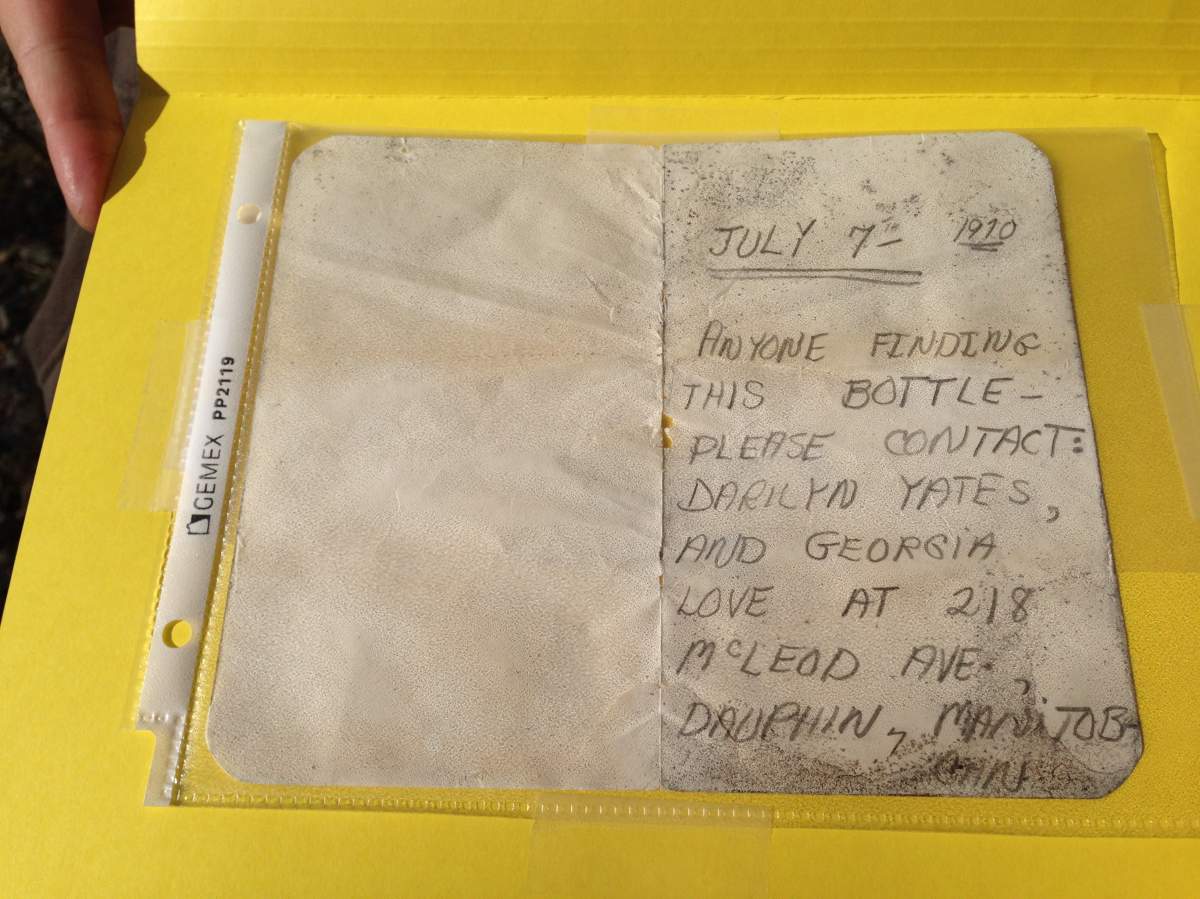 GEMEX PP2119
JULY 7TH 1970
ANYONE FINDING
THIS BOTTLE -
PLEASE CONTACT:
DARILYN YATES,
AND GEORGIA
LOVE AT 218
McLEOD AVE.,
DAUPHIN, MANITOB-